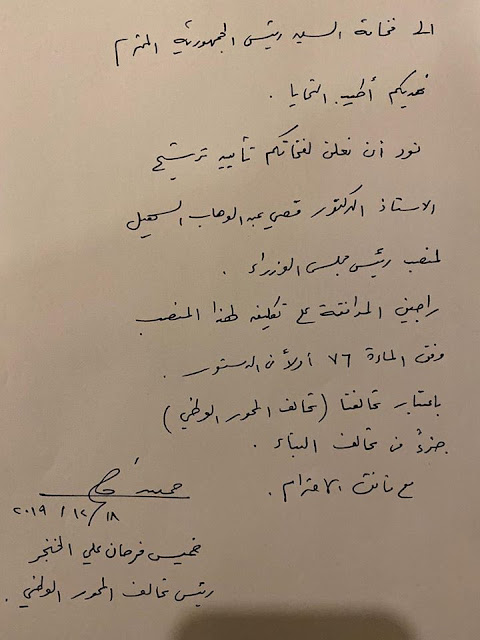 الى فخامة السيد رئيس الجمهورية المحترم
نهديكم أطيب التحايا .
نود ان نعلن لفخامتكم تأييد ترشيح
الاستاذ الدكتور قصي عبد الوهاب السهيل
لمنصب رئيس مجلس الوزراء .
راجين الموافقة على تكليفه لهذا المنصب
وفق المادة ٧٦ أولاً من الدستور .
باعتبار تحالفنا (تحالف المحور الوطني)
جزءً من تحالف البناء .
مع فائق الاحترام .
٢٠١٩ / ١٢ / ١٨
خميس فرحان علي الخنجر
رئيس تحالف المحور الوطني .